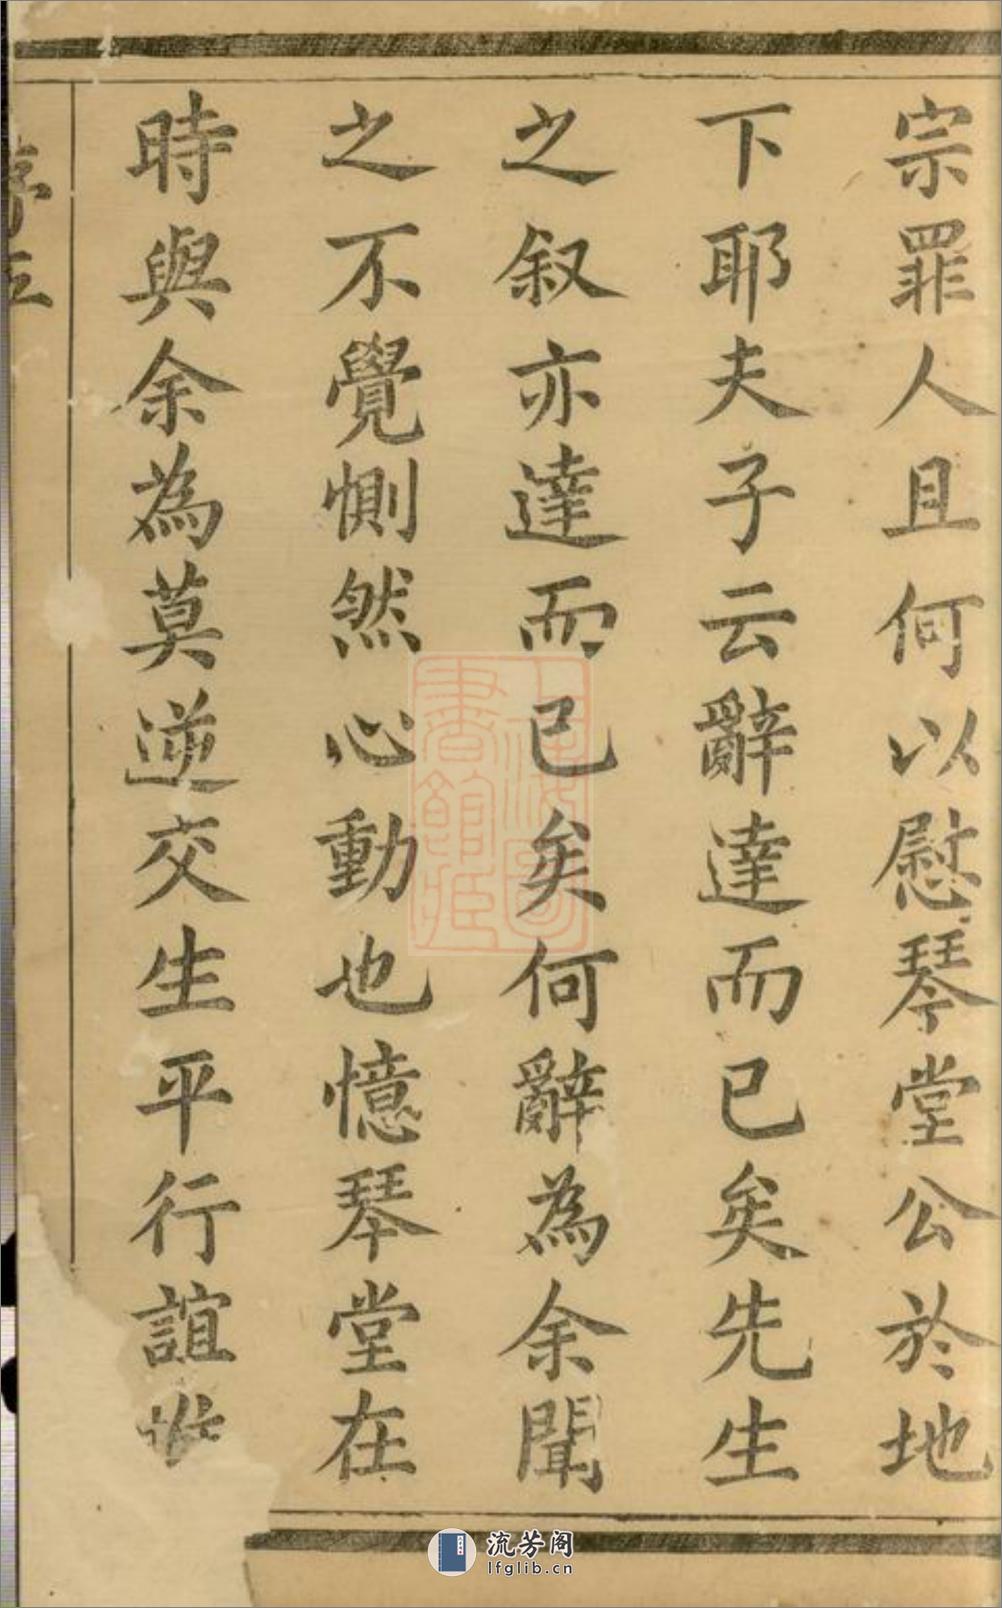 宗罪人且何以慰琴堂公於地
下耶夫子云辭達而已矣先生
之叙亦達而已矣何辭為余聞
之不覺惻然心動也憶琴堂在
時與余為莫逆交生平行誼
上海圖書館藏
流芳阁
lfglib.cn